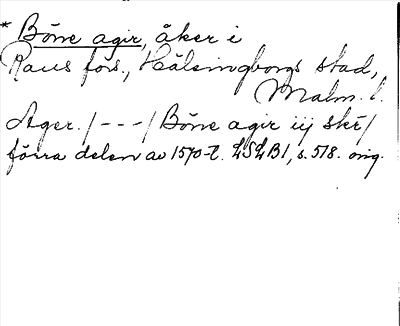 * Böne agir, åker i
Raus förs., Hälsingborgs stad,
Malm. l.
Ager. /---/ Böne agir iij skr/
förra delen av 1570-t. LSLB1, s. 518. orig.